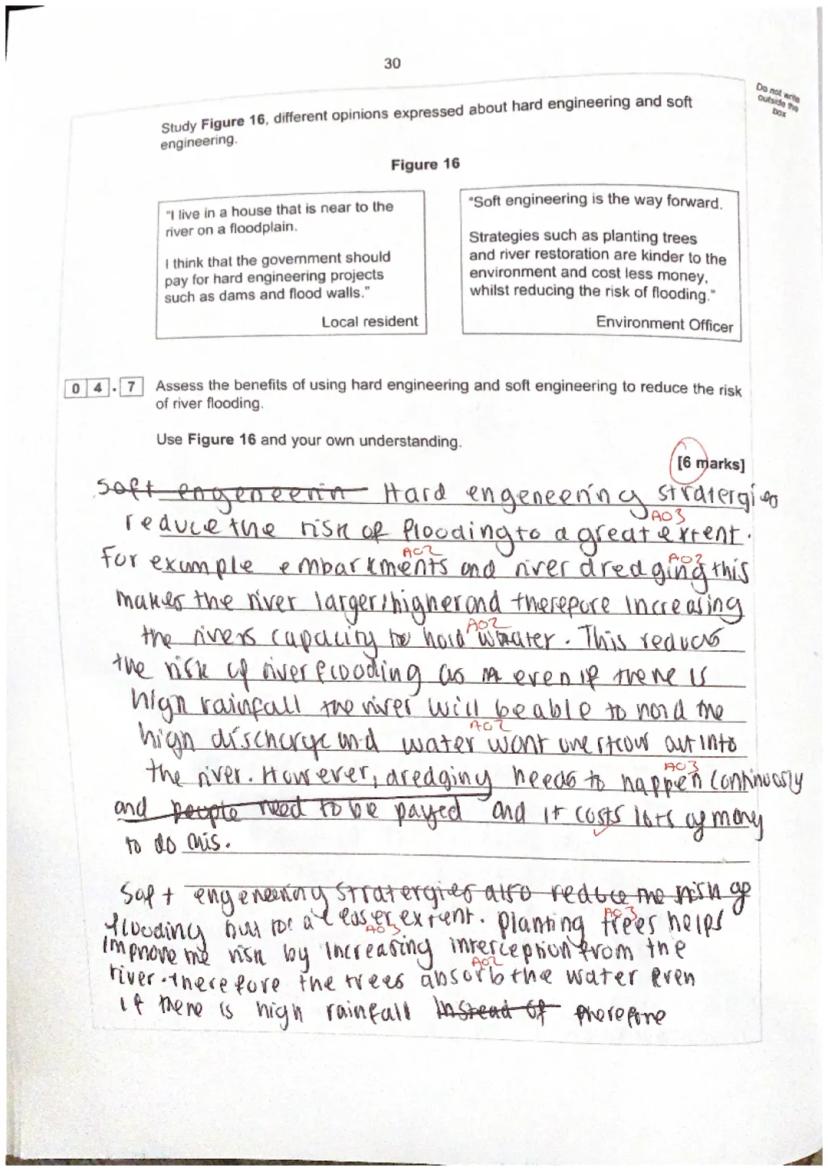 30
Do not write
outside the
box
Study Figure 16, different opinions expressed about hard engineering and soft
engineering.
Figure 16
"I live in a house that is near to the
river on a floodplain.
I think that the government should
pay for hard engineering projects
such as dams and flood walls."
Local resident
"Soft engineering is the way forward.
Strategies such as planting trees
and river restoration are kinder to the
environment and cost less money,
whilst reducing the risk of flooding."
Environment Officer
0 4 . 7 Assess the benefits of using hard engineering and soft engineering to reduce the risk
of river flooding.
Use Figure 16 and your own understanding.
[6 marks]
soft engeneerin Hard engeneering stratergies
AO3
reduce the risk of flooding to a great extent.
AO2 AO2
for example embarkments and river dredging this
makes the river larger/higher and therefore increasing
AO2
the rivers capacity to hold water. This reduces
the risk of river flooding as even if there is
high rainfall the river will be able to hold the
AO2
high discharge and water wont overflow out into
AO3
the river. However, dredging needs to happen continuously
and people need to be payed and it costs lots of mony
to do this.
Soft engeneering stratergies also reduce the risk of
AO3
flooding but to a lesser extent. planting trees helps
AO3
improve the risk by increasing interception from the
AO2
river. therefore the trees absorb the water even
if there is high rainfall instead of therefore